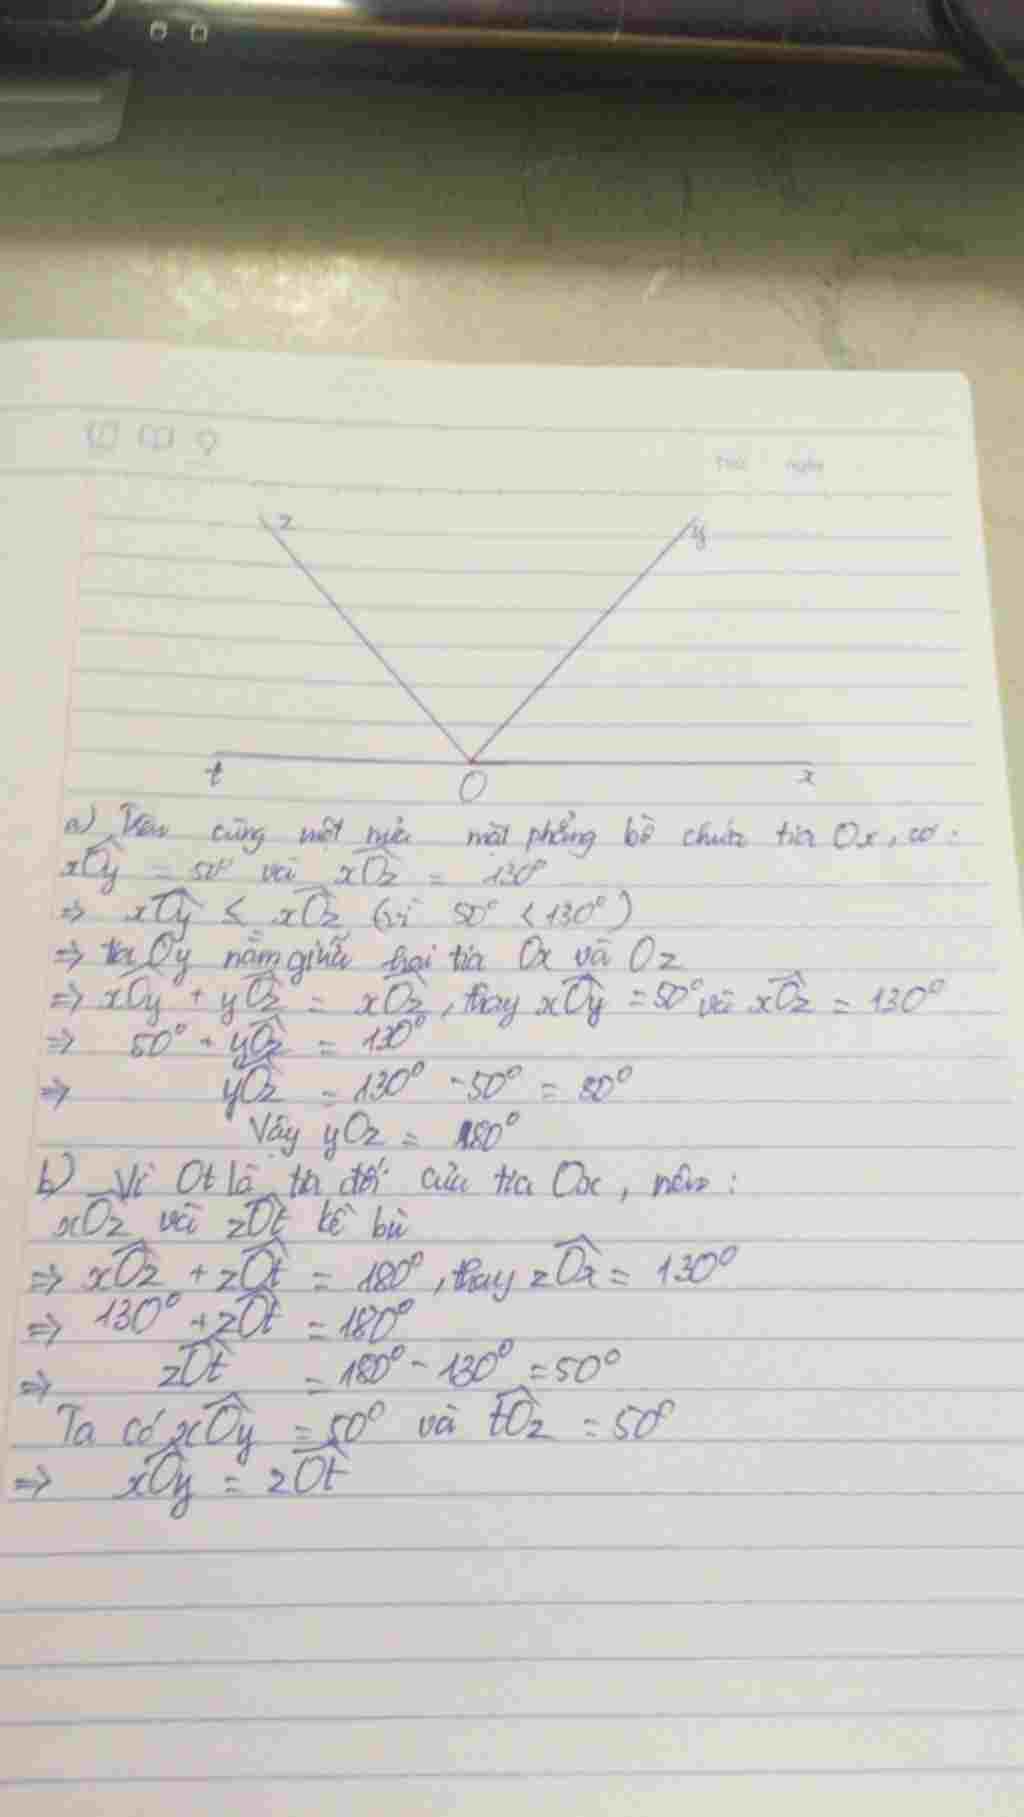 Thứ ngày
z
y
t
O
x
a) Trên cùng một nửa mặt phẳng bờ chứa tia Ox, có:
xÔy = 50° và xÔz = 130°
=> xÔy < xÔz (vì 50° < 130°)
=> tia Oy nằm giữa hai tia Ox và Oz
=> xÔy + yÔz = xÔz, thay xÔy = 50° và xÔz = 130°
=> 50° + yÔz = 130°
=> yÔz = 130° - 50° = 80°
Vậy yOz = 80°
b) Vì Ot là tia đối của tia Ox, nên:
xÔz và zÔt kề bù
=> xÔz + zÔt = 180°, thay zÔx = 130°
=> 130° + zÔt = 180°
=> zÔt = 180° - 130° = 50°
Ta có xÔy = 50° và tÔz = 50°
=> xÔy = zÔt